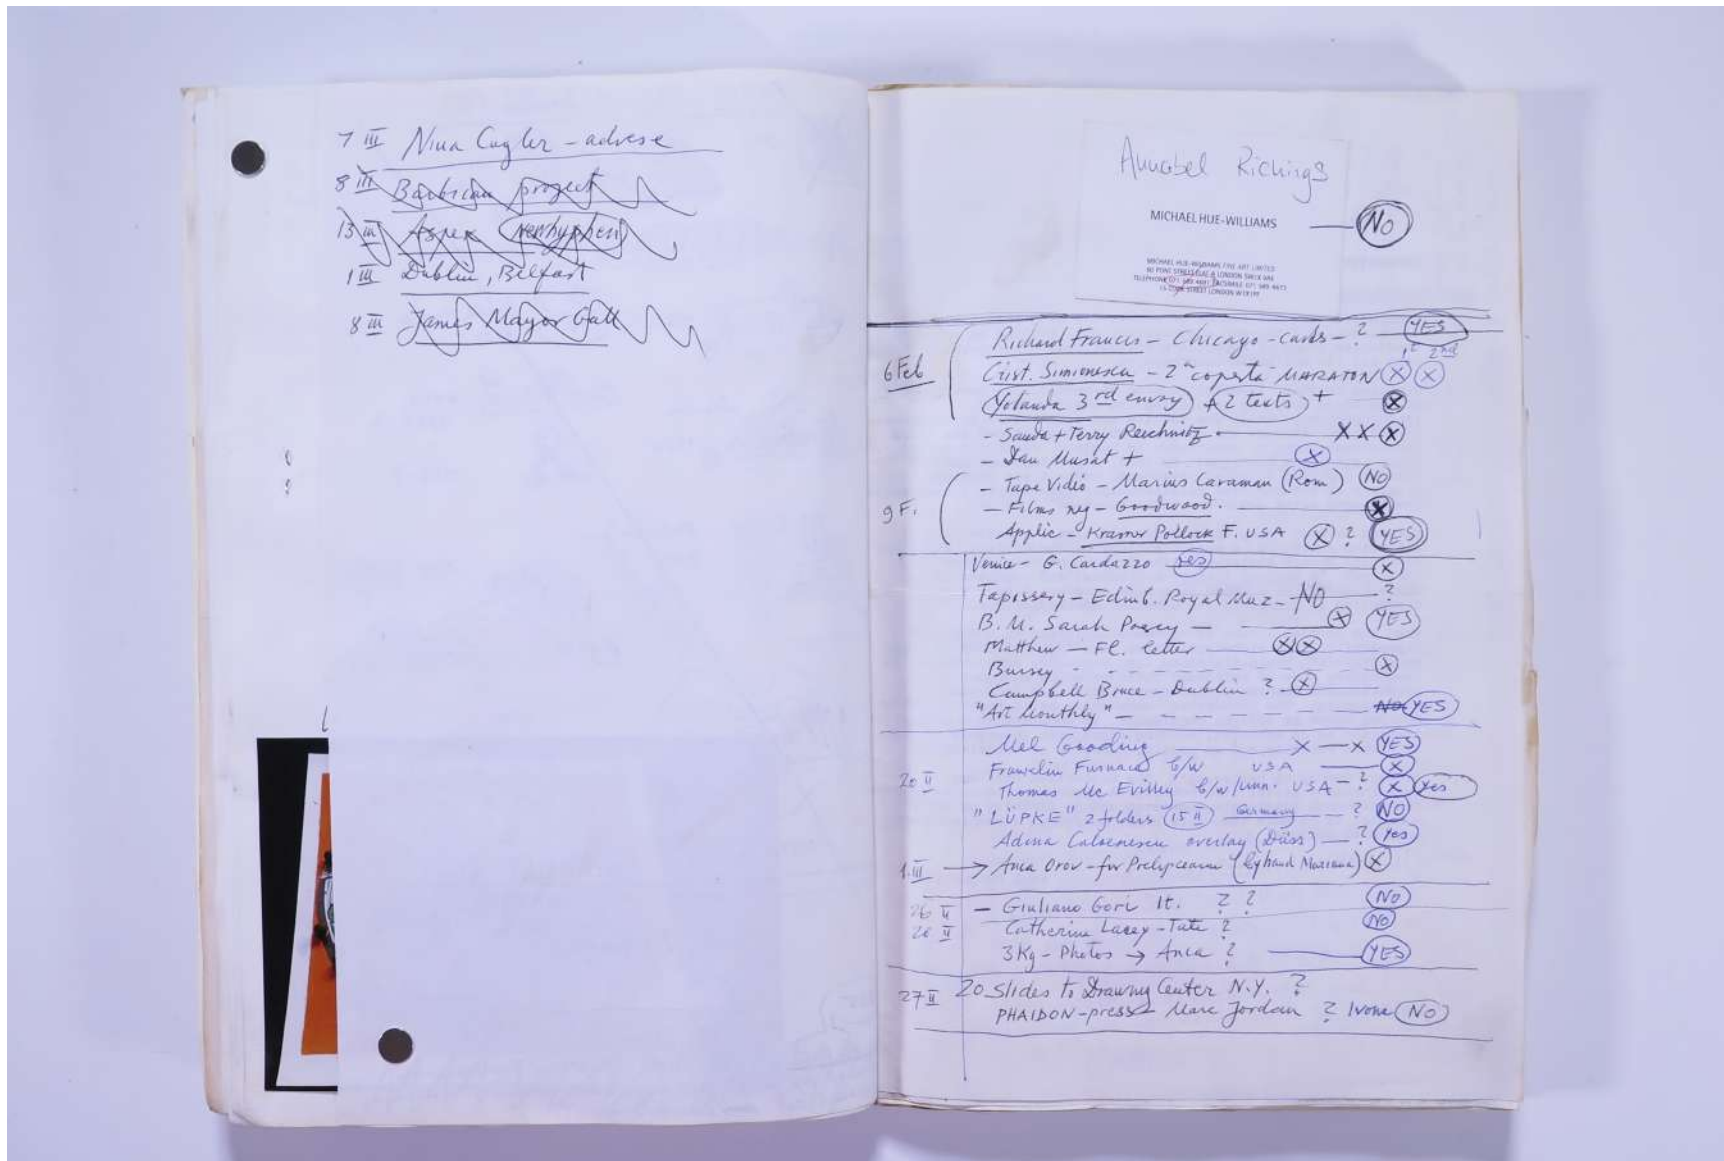 7 III Nina Cugler - adrese
8 III Barbican project
13 III Aspex Newhyphen
1 III Dublin, Belfast
8 III James Mayor Gall
Annabel Richings
MICHAEL HUE-WILLIAMS — NO
MICHAEL HUE-WILLIAMS FINE ART LIMITED
TELEPHONE 071 FACSIMILE 071
STREET LONDON
Richard Francis - Chicago - cards - ? YES
1st 2nd
6 Feb Crist. Simionescu - 2 "coperta" MARATON X X
Yolanda 3rd envoy + 2 texts + X
- Sanda + Terry X X X
- Dan Musat + X
- Tape Video - Marius Caraman (Rom) NO
9 F. - Films neg - Goodwood. X
Applic - Krasner Pollock F. USA X ? YES
Venice - G. Cardazzo yes X
Tapissery - Edinb. Royal Muz - NO ?
B.M. Sarah — X YES
Matthew — Fl. letter X X
Bursey - - - - - X
Campbell Bruce - Dublin ? X
"Art Monthly" - - - - - NO YES
Mel Gooding X — X YES
Franklin Furnace b/w USA X
20 II Thomas Mc Evilley b/w/ USA - ? X Yes
"LÜPKE" 2 folders 15 II Germany - ? NO
Adina Caloenescu overlay (Düss) - ? Yes
1. III → Anca Orov - for (by hand Mariana) X
26 II - Giuliano Gori It. ? ? NO
20 II Catherine Lacey - Tate ? NO
3 Kg - Photos → Anca ? YES
27 II 20 Slides to Drawing Center N.Y. ?
PHAIDON - press Marc Jordan ? Ivona NO